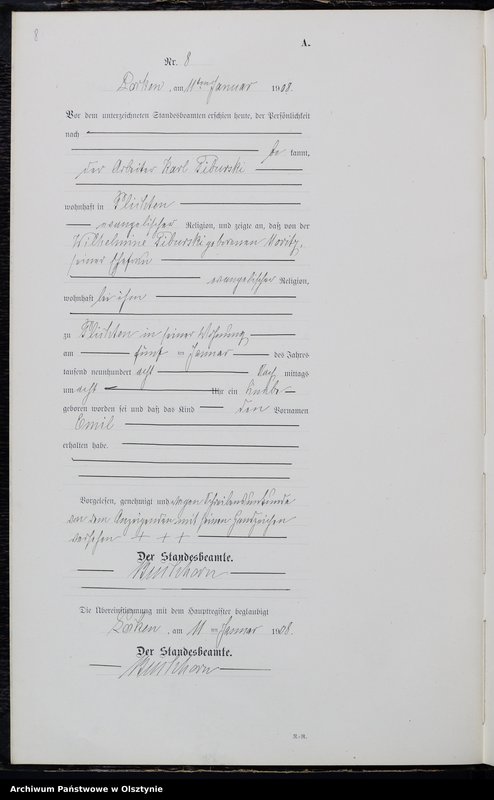 8
A.
Nr. 8
Dorken, am 11ten Januar 1908.
Vor dem unterzeichneten Standesbeamten erschien heute, der Persönlichkeit
nach
be kannt,
der Arbeiter Karl Tiburski
wohnhaft in Plichten
evangelischer Religion, und zeigte an, daß von der
Wilhelmine Tiburski geborenen Moritz,
seiner Ehefrau
evangelischer Religion,
wohnhaft bei ihm
zu Plichten in seiner Wohnung
am fünf ten Januar des Jahres
tausend neunhundert acht Nach mittags
um acht Uhr ein Knabe
geboren worden sei und daß das Kind den Vornamen
Emil
erhalten habe.
Vorgelesen, genehmigt und wegen Schreibensunkunde
von dem Anzeigenden mit seinen Handzeichen
versehen + + +
Der Standesbeamte.
Die Übereinstimmung mit dem Hauptregister beglaubigt
Dorken, am 11 ten Januar 1908.
Der Standesbeamte.
R.-R.
Archiwum Państwowe w Olsztynie